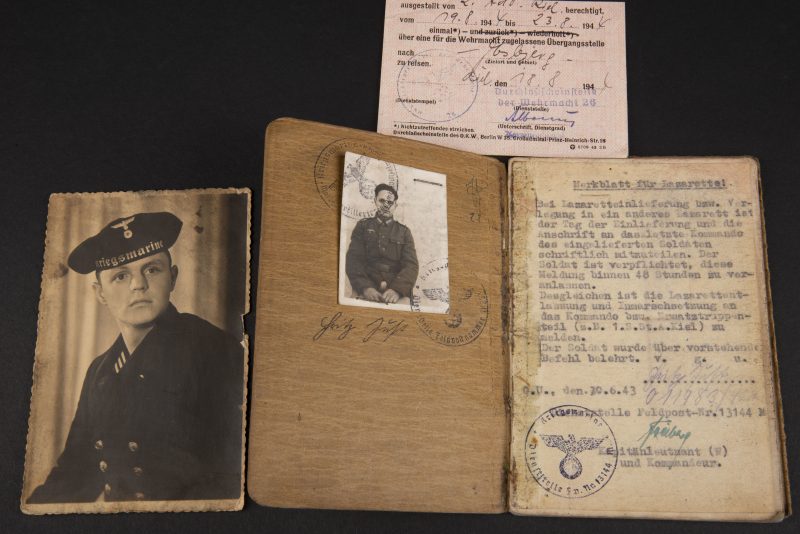 ausgestellt von 2. Adm. berechtigt,
vom 19.8. 1944 bis 23.8. 194
einmal*) – und zurück*) – wiederholt*)
über eine für die Wehrmacht zugelassene Übergangsstelle
nach Esbjerg
(Zielort und Gebiet)
zu reisen.
Kiel, den 18.8 194
Durchlaßscheinstelle
der Wehrmacht 26
(Dienststempel)
(Dienststelle)
(Unterschrift, Dienstgrad)
*) Nichtzutreffendes streichen.
Durchlaßscheinstelle des O.K.W., Berlin W 35, Großadmiral-Prinz-Heinrich-Str.
Kriegsmarine
Merkblatt für Lazarette!
Bei Lazaretteinlieferung bzw. Ver-
legung in ein anderes Lazarett ist
der Tag der Einlieferung und die
Anschrift an das letzte Kommando
des eingelieferten Soldaten
schriftlich mitzuteilen. Der
Soldat ist verpflichtet, diese
Meldung binnen 48 Stunden zu ver-
anlassen.
Desgleichen ist die Lazarettent-
lassung und Inmarschsetzung an
das Kommando bzw. Ersatztruppen-
teil (z.B. 1.S.St.A.Kiel) zu
melden.
Der Soldat wurde über vorstehenden
Befehl belehrt. v. g. u.
O.U., den 30.6.43
Dienststelle Feldpost-Nr.13144 M
Kriegsmarine
Dienststelle F.p. No 13144
Kapitänleutnant (W)
und Kommandeur.